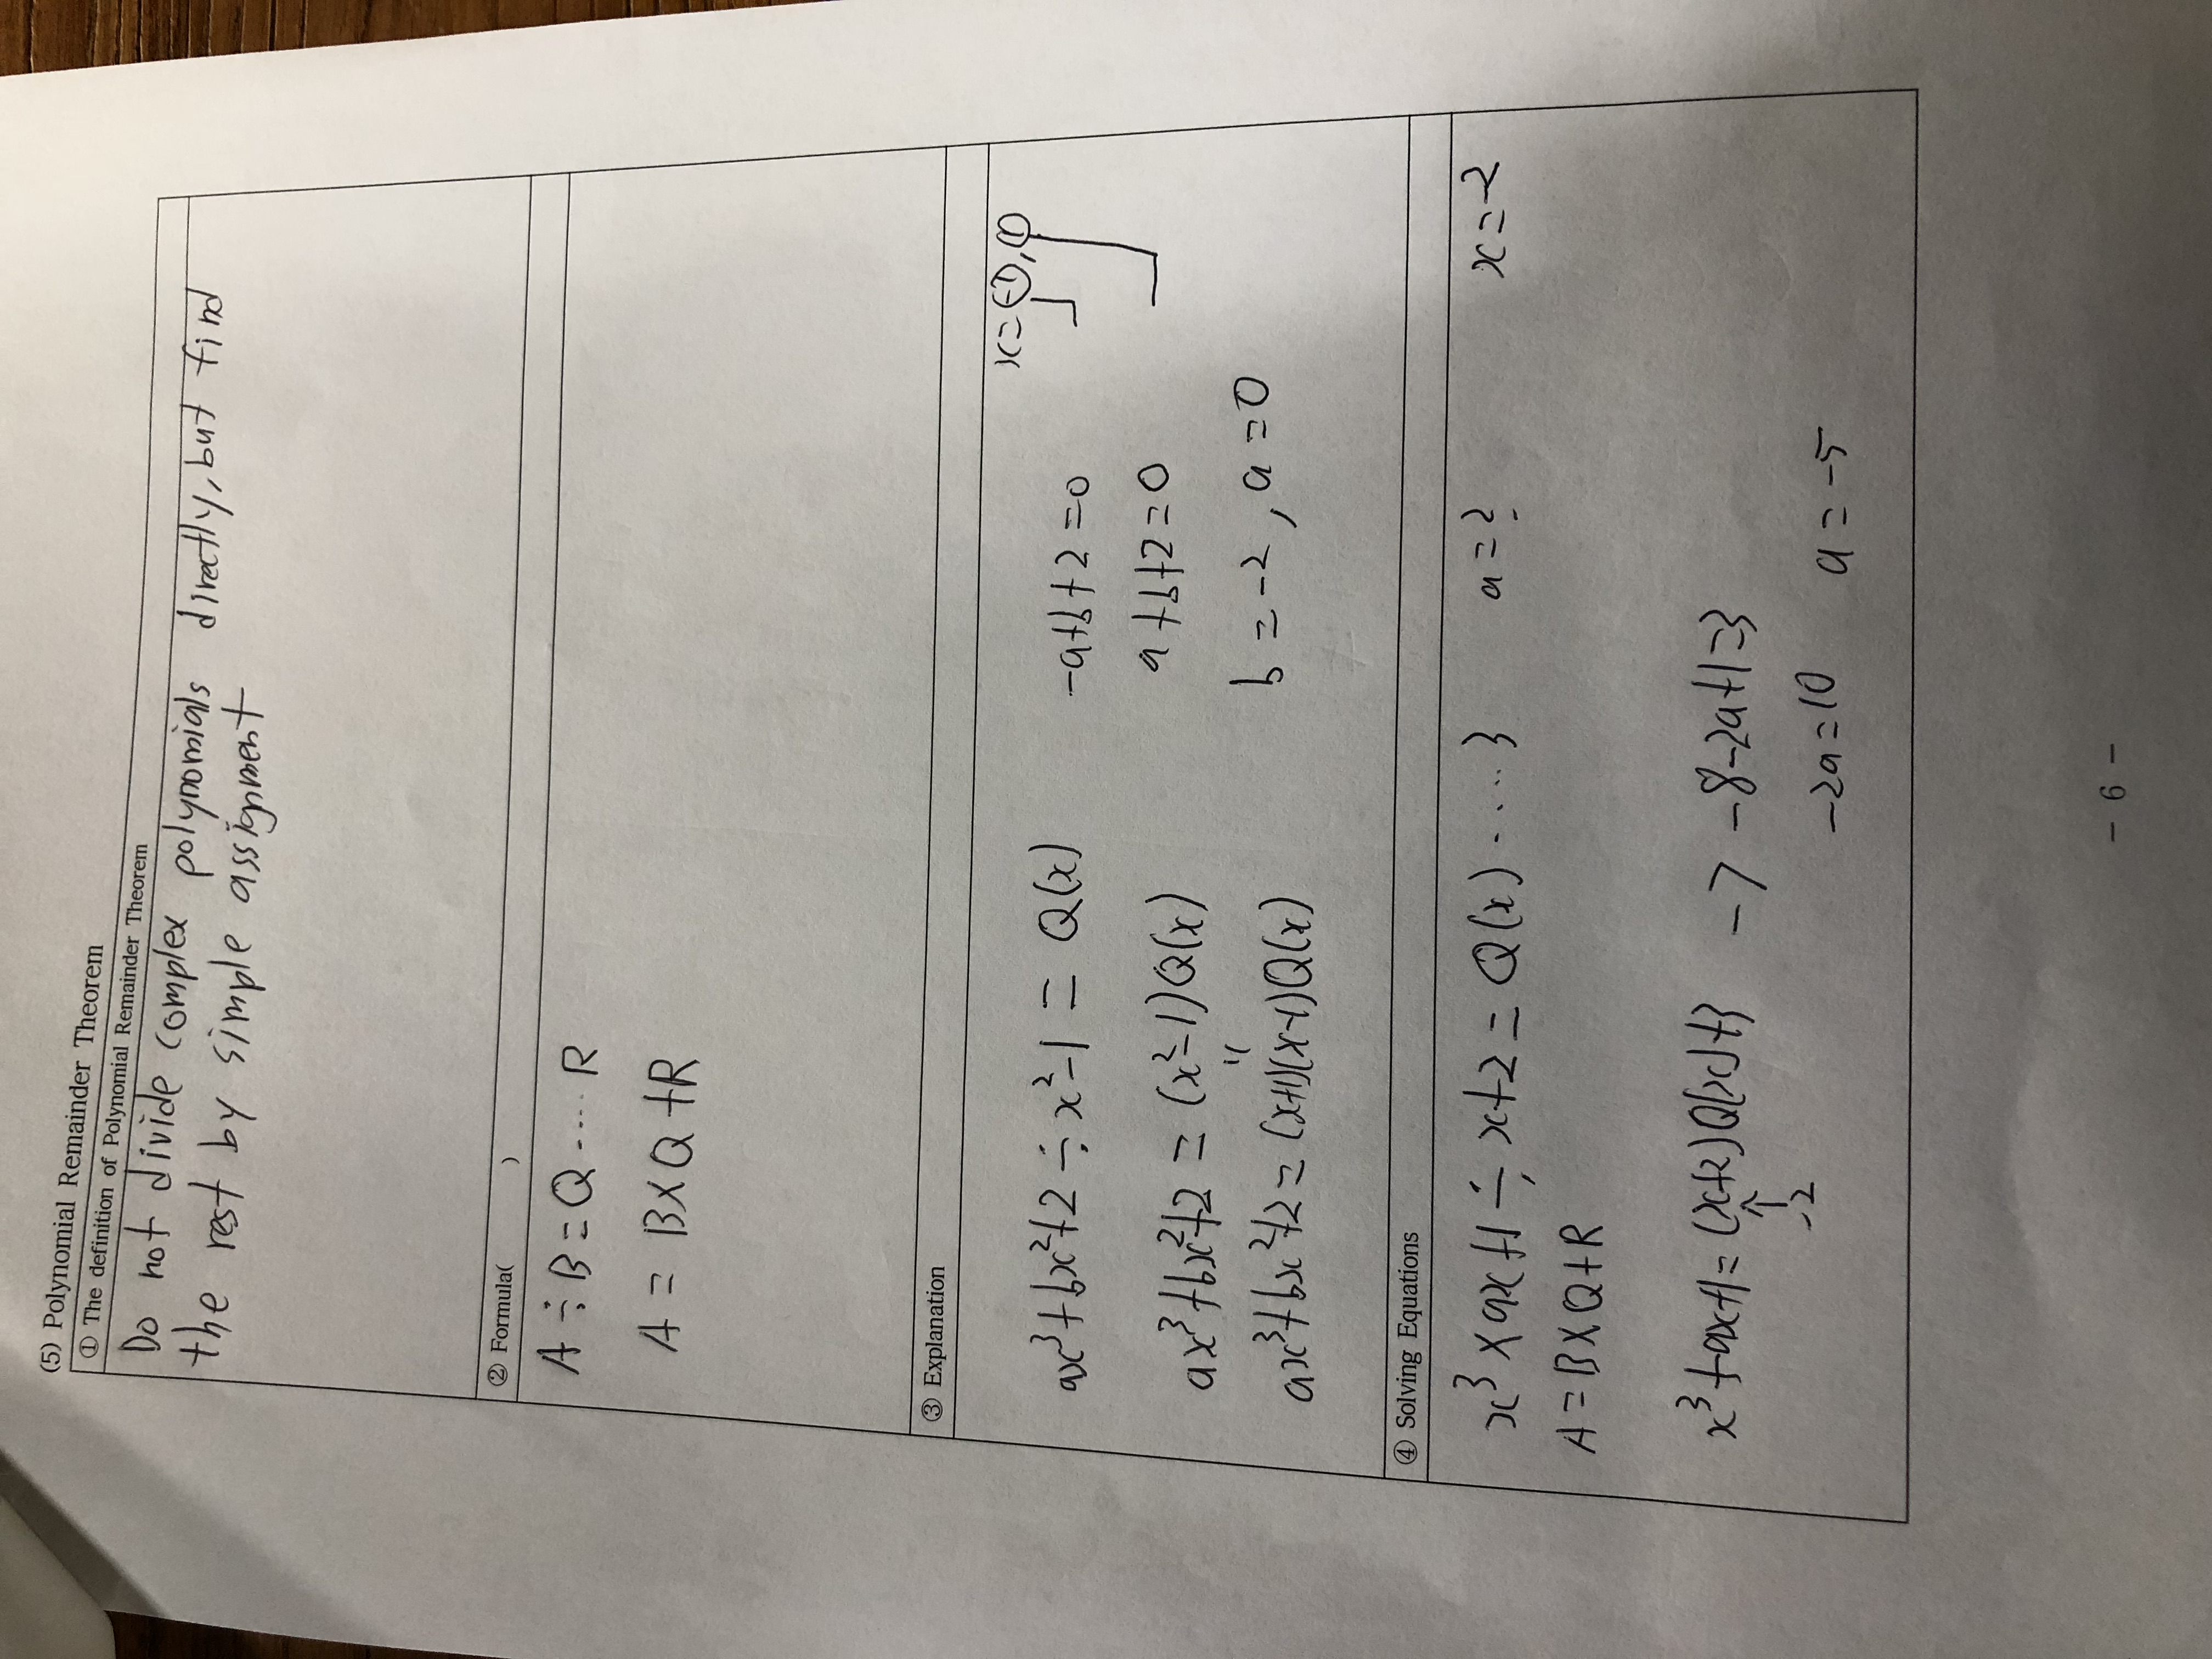 (5) Polynomial Remainder Theorem
① The definition of Polynomial Remainder Theorem
Do not divide complex polynomials directly, but find
the rest by simple assignment
② Formula( )
A ÷ B = Q .... R
A = B X Q + R
③ Explanation
x = -1, 1
ax³ + bx² + 2 ÷ x² - 1 = Q(x) -a + b + 2 = 0
ax³ + bx² + 2 = (x² - 1)Q(x) a + b + 2 = 0
ax³ + bx² + 2 = (x+1)(x-1)Q(x) b = -2, a = 0
④ Solving Equations
x³ x ax + 1 ÷ x + 2 = Q(x) .... 3 a = ? x = -2
A = B X Q + R
x³ + ax + 1 = (x+2)Q(x) + 3 -7 -8 - 2a + 1 = 3
-2
-2a = 10 a = -5
- 6 -